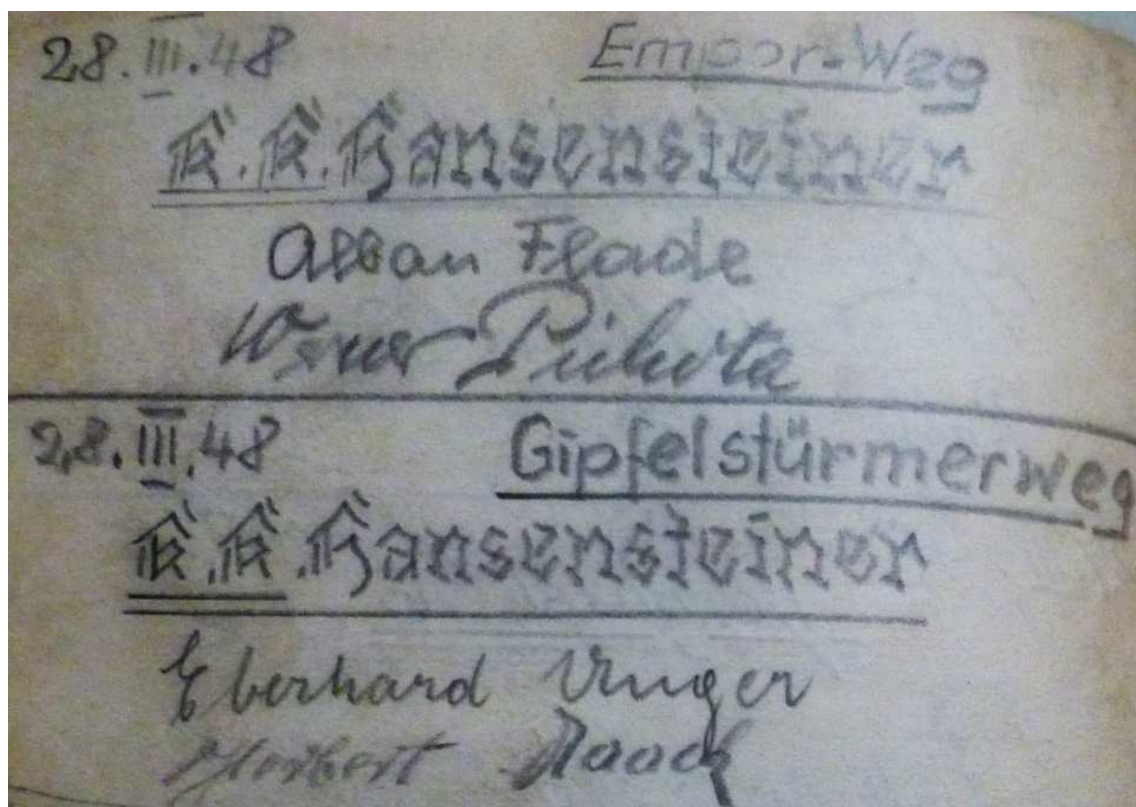 28.III.48 Empor-Weg
K.K.Hansensteiner
Alban Flade
Werner
28.III.48 Gipfelstürmerweg
K.K.Hansensteiner
Eberhard Unger
Herbert